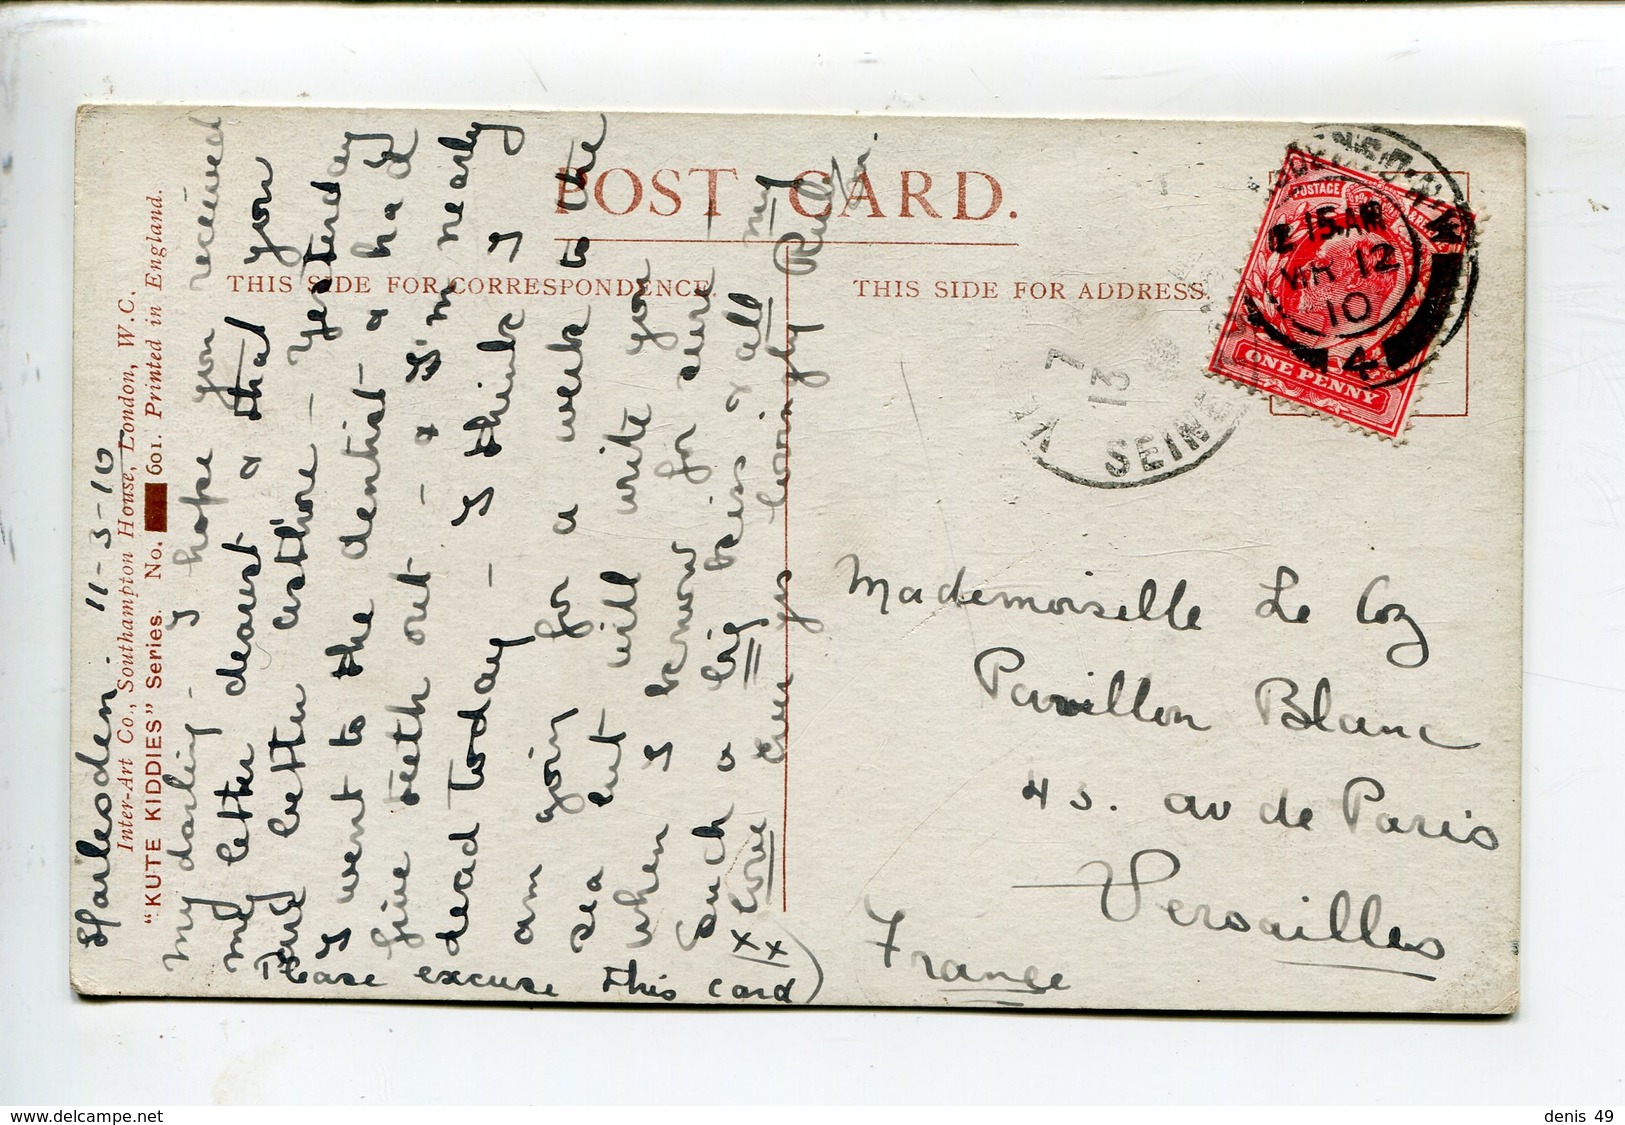 POST CARD.
THIS SIDE FOR CORRESPONDENCE.
THIS SIDE FOR ADDRESS.
Inter-Art Co., Southampton House, London, W.C.
"KUTE KIDDIES" Series. No. 601. Printed in England.
Harlesden. 11-3-10
My darling - I hope you received
my letter dearest & that you
are better as before - Yesterday
I went to the dentist & had
five teeth out - & I'm nearly
dead today - I think I
am going for a week to the
sea but will write you
when I know for sure
Such a big kiss & all my
love
ever yrs lovingly
xxx
Please excuse this card)
Mademoiselle Le Coz
Pavillon Blanc
43. av de Paris
Versailles
France
POSTAGE
ONE PENNY
2 15 AM
MR 12
10
4
7
13
SEINE
denis 49
my-paper-shop